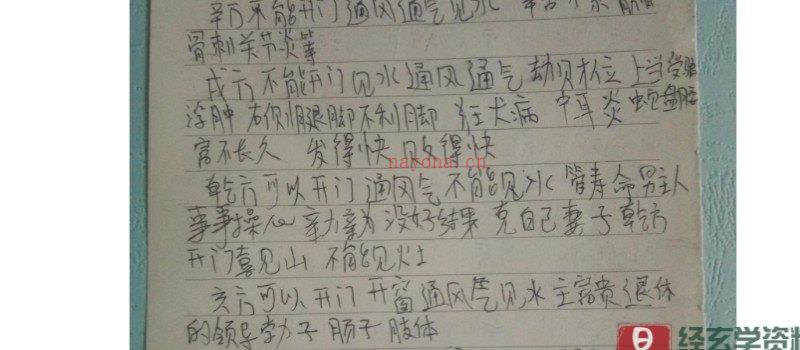 辛方不能开门通风通气见水
骨刺关节炎等
戌方不能开门见水通风通气 劫财位 上当受骗
浮肿 右侧腿脚不利脚 狂犬病 中耳炎
富不长久 发得快 败得快
nayonai.cn
乾方可以开门通风气不能见水 管寿命男主人
事事操心 亲力亲为 没好结果 克自己妻子 乾方
开门喜见山 不能见灶
亥方可以开门 开窗通风气见水 主富贵 退休
的领导 肠子 肢体
经玄学资料